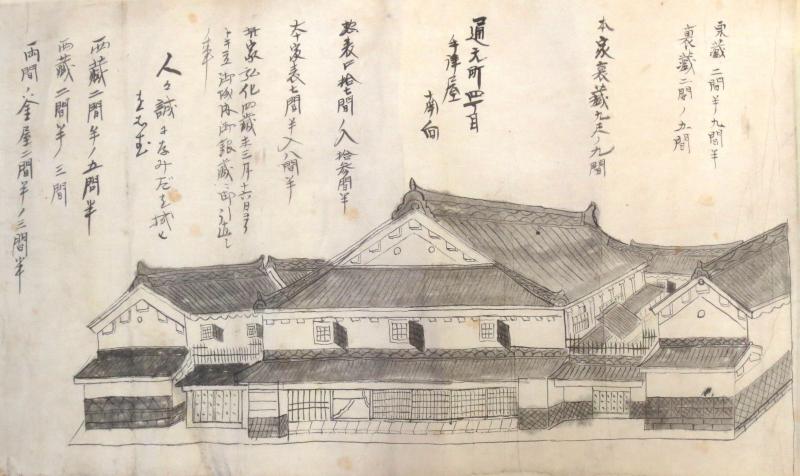 東蔵 二間半ノ九間半
裏蔵 二間ノ五間
本家裏蔵九尺ノ九間
通元町四丁目
手津屋
南向
惣表口拾七間ノ入拾参間半
本家表七間半入八間半
此家弘化四歳未三月十六日より
御城内御銀蔵御引越し
事
人々誠になみだを拭ひ
西蔵二間半ノ五間半
西蔵二間半ノ三間
両間ノ釜屋二間半ノ三間半